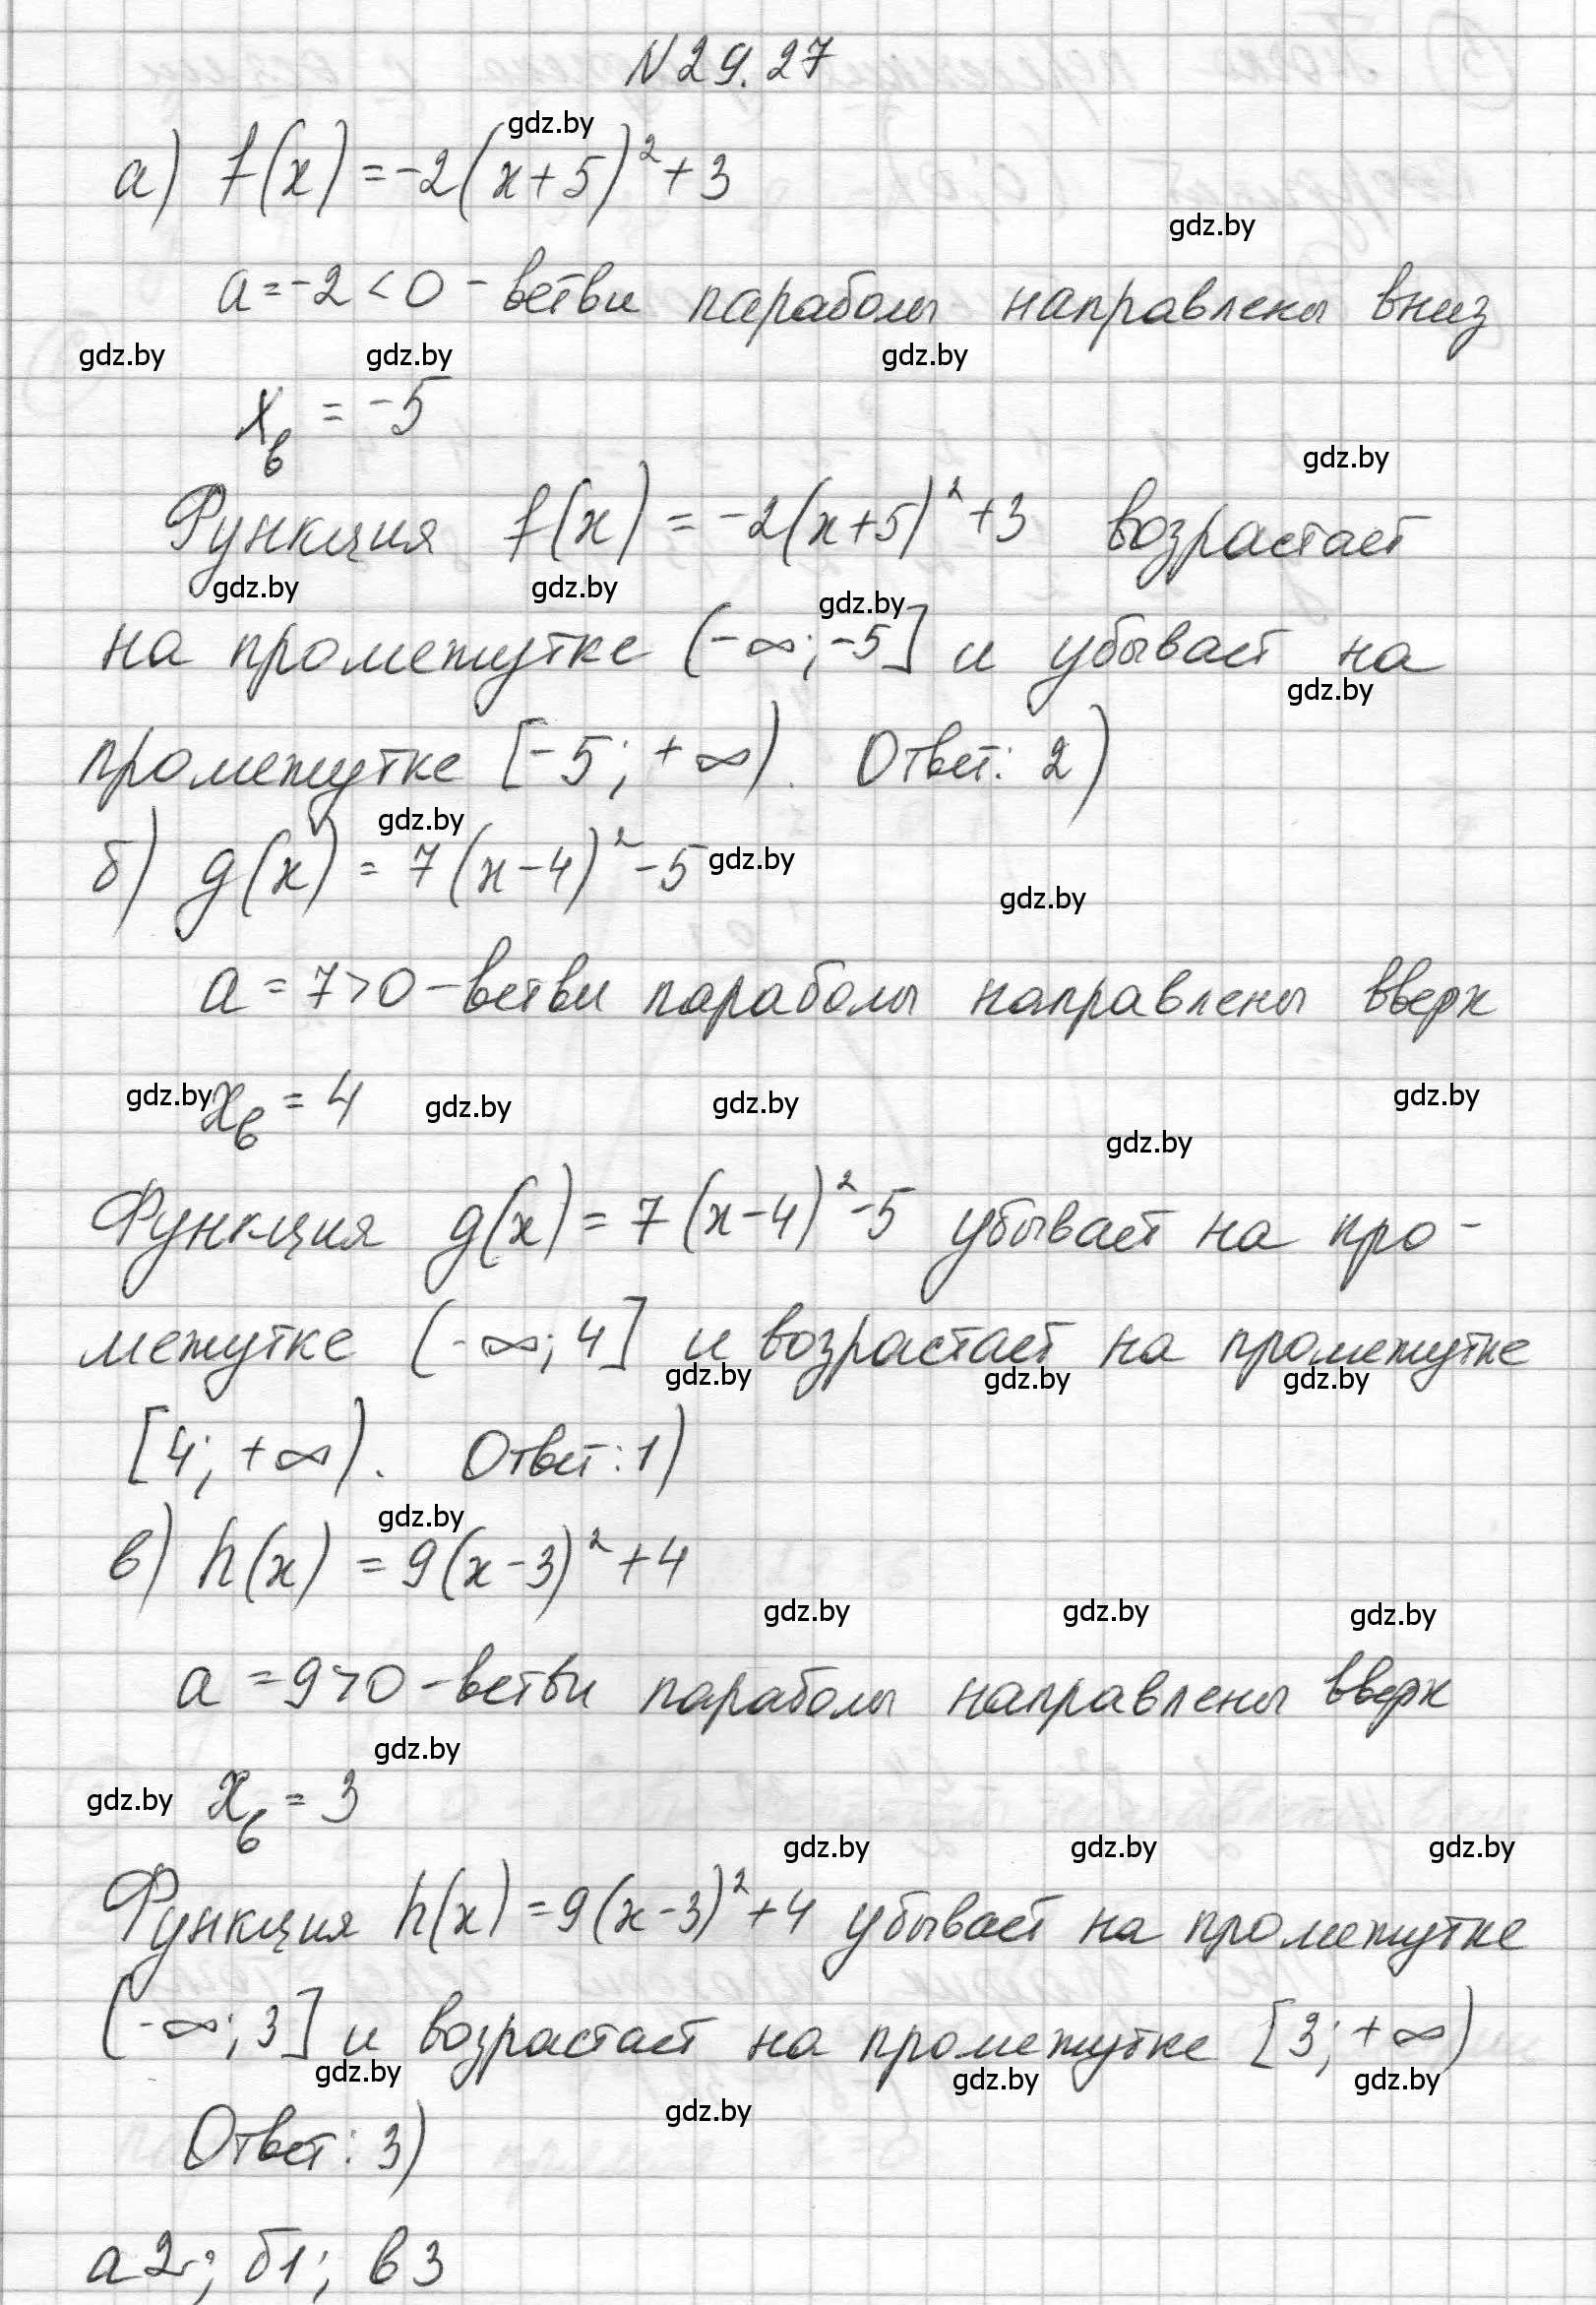 N 29.27
gdz.by
а) f(x) = -2(x+5)² + 3
gdz.by
a = -2 < 0 - ветви параболы направлены вниз
gdz.by gdz.by gdz.by
xв = -5
gdz.by
Функция f(x) = -2(x+5)² + 3 возрастает
gdz.by gdz.by gdz.by
на промежутке (-∞; -5] и убывает на
gdz.by
промежутке [-5; +∞). Ответ: 2)
gdz.by
б) g(x) = 7(x-4)² - 5 gdz.by
gdz.by
a = 7 > 0 - ветви параболы направлены вверх
gdz.by xв = 4 gdz.by gdz.by gdz.by
gdz.by
Функция g(x) = 7(x-4)² - 5 убывает на про-
межутке (-∞; 4] и возрастает на промежутке
gdz.by gdz.by gdz.by
[4; +∞). Ответ: 1)
gdz.by
в) h(x) = 9(x-3)² + 4
gdz.by gdz.by gdz.by
a = 9 > 0 - ветви параболы направлены вверх
gdz.by
gdz.by xв = 3
gdz.by gdz.by gdz.by
Функция h(x) = 9(x-3)² + 4 убывает на промежутке
(-∞; 3] и возрастает на промежутке [3; +∞)
gdz.by gdz.by gdz.by
gdz.by
Ответ: 3)
а2; б1; в3